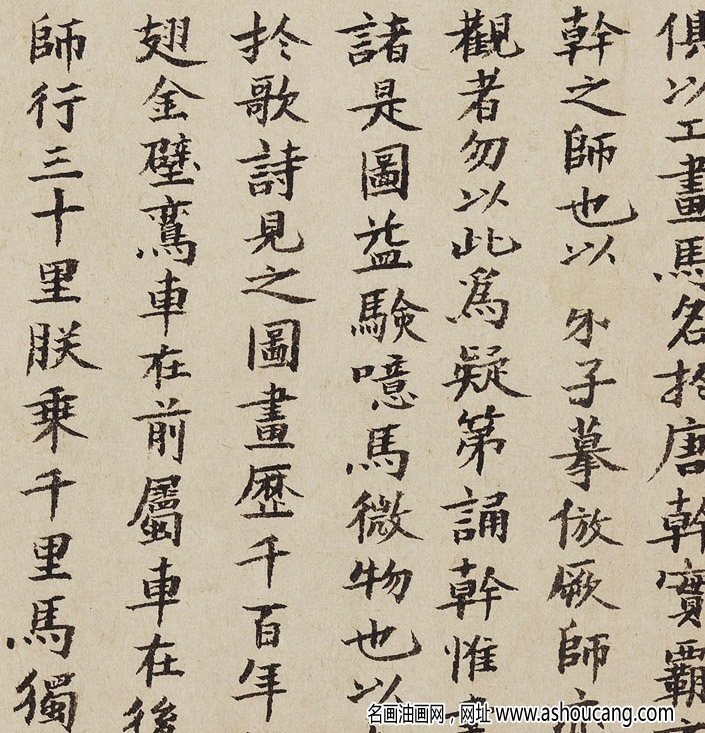 俱以工畫馬名扵唐幹實霸
幹之師也以弟子摹倣厥師亦
觀者勿以此爲疑第誦幹惟
諸是圖益驗噫馬微物也以
扵歌詩見之圖畫歷千百年
翅金壁鸞車在前屬車在後
師行三十里朕乘千里馬獨
名画油画网，网址 www.ashoucang.com